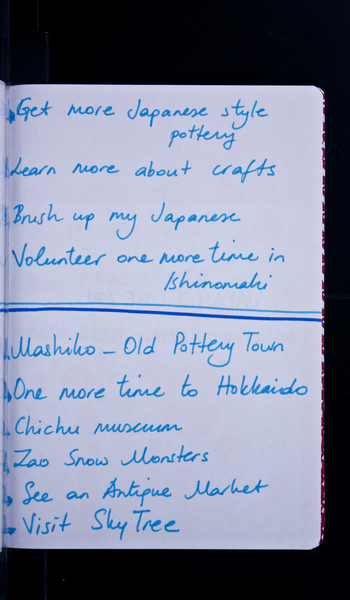 Get more Japanese style
pottery
Learn more about crafts
Brush up my Japanese
Volunteer one more time in
Ishinomaki
Mashiko - Old Pottery Town
One more time to Hokkaido
Chichu museum
Zao Snow Monsters
See an Antique Market
Visit Sky Tree